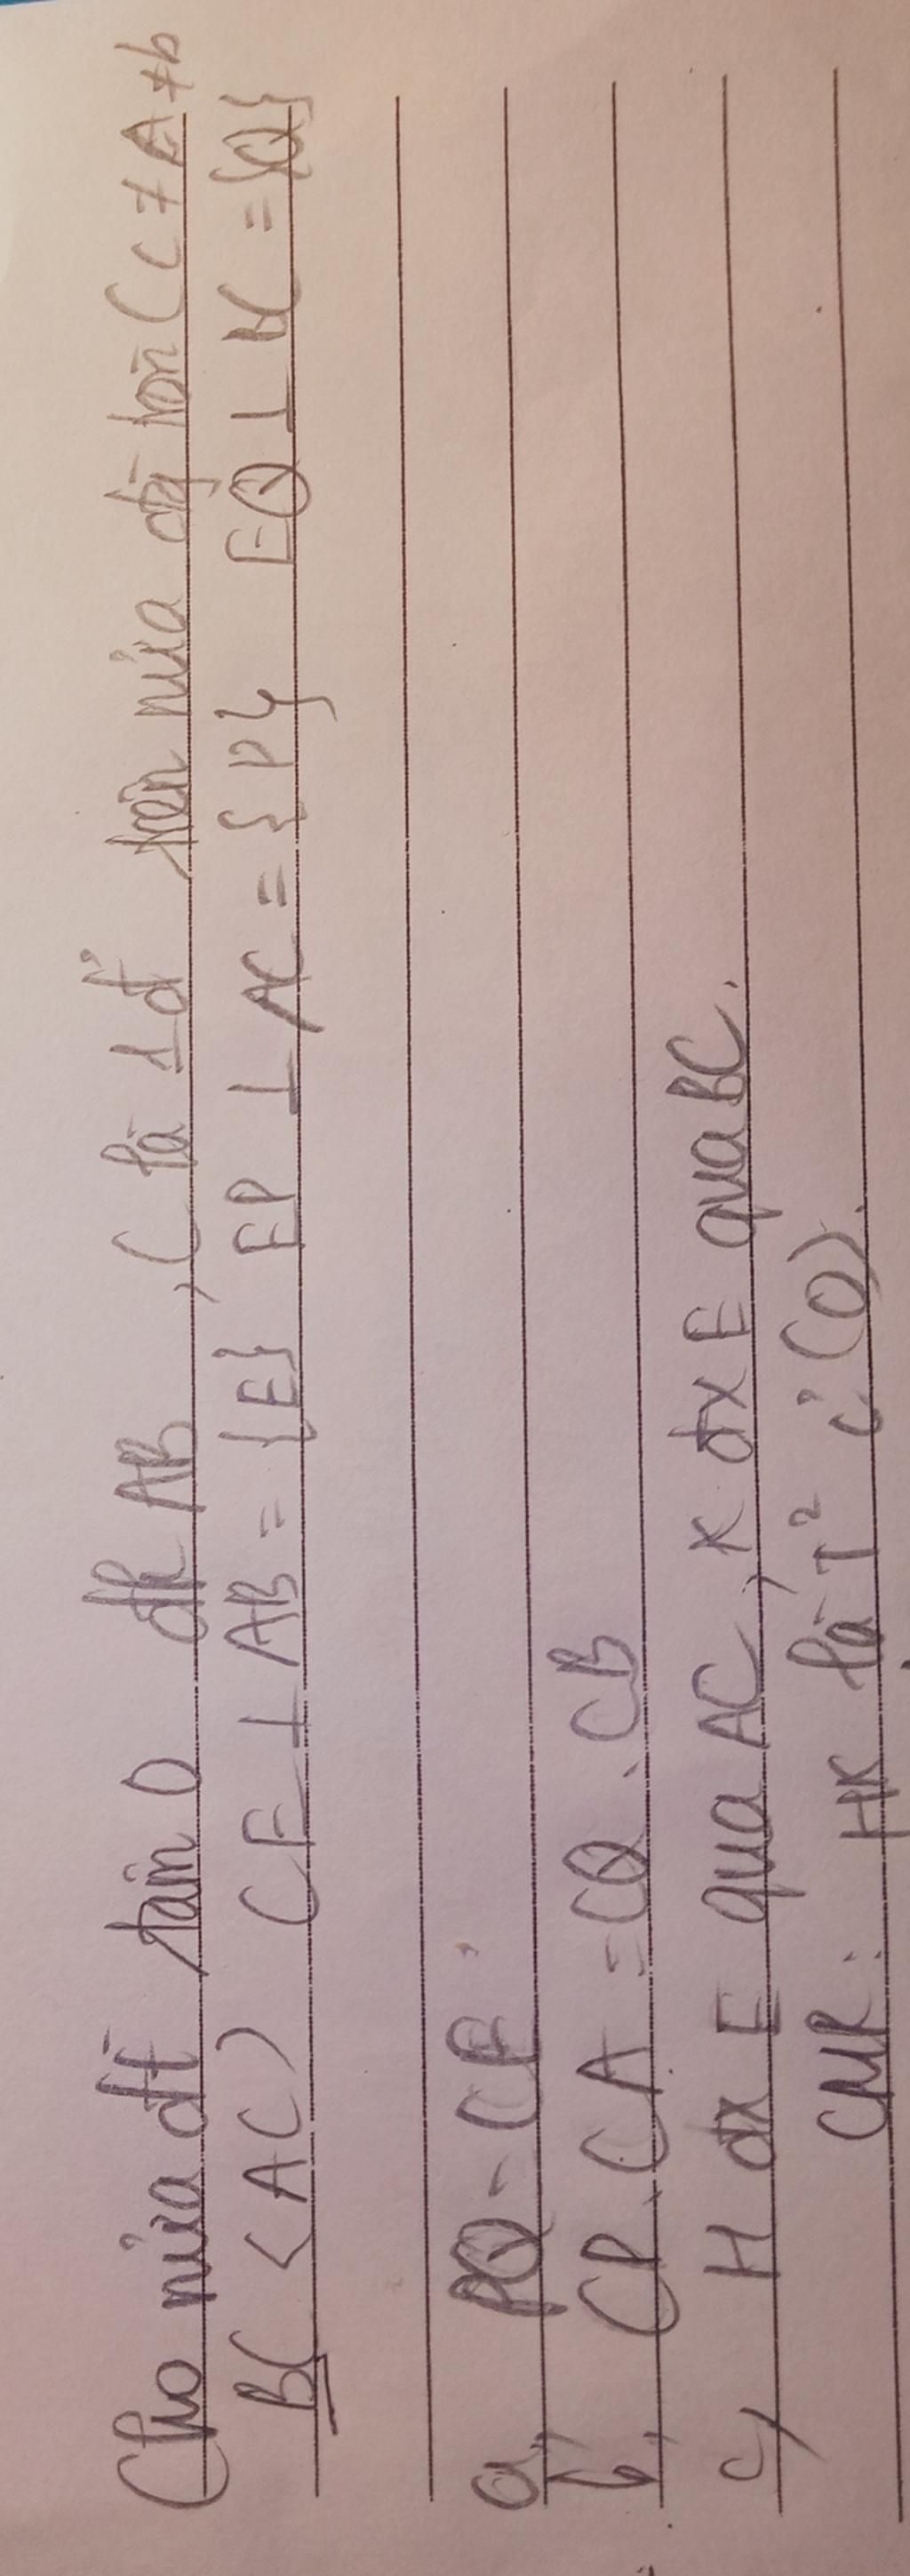 Cho nửa đt tâm O đk AB, C là 1 đ' trên nửa đg tròn (C ≠ A ≠ b
BC < AC) CE ⊥ AB = {E} EP ⊥ AC = {P} EQ ⊥ = {Q}
a, PQ = CE
b, CP. CA = CQ. CB
c, H đx E qua AC, K đx E qua BC.
CMR: HK là T² c' (O).